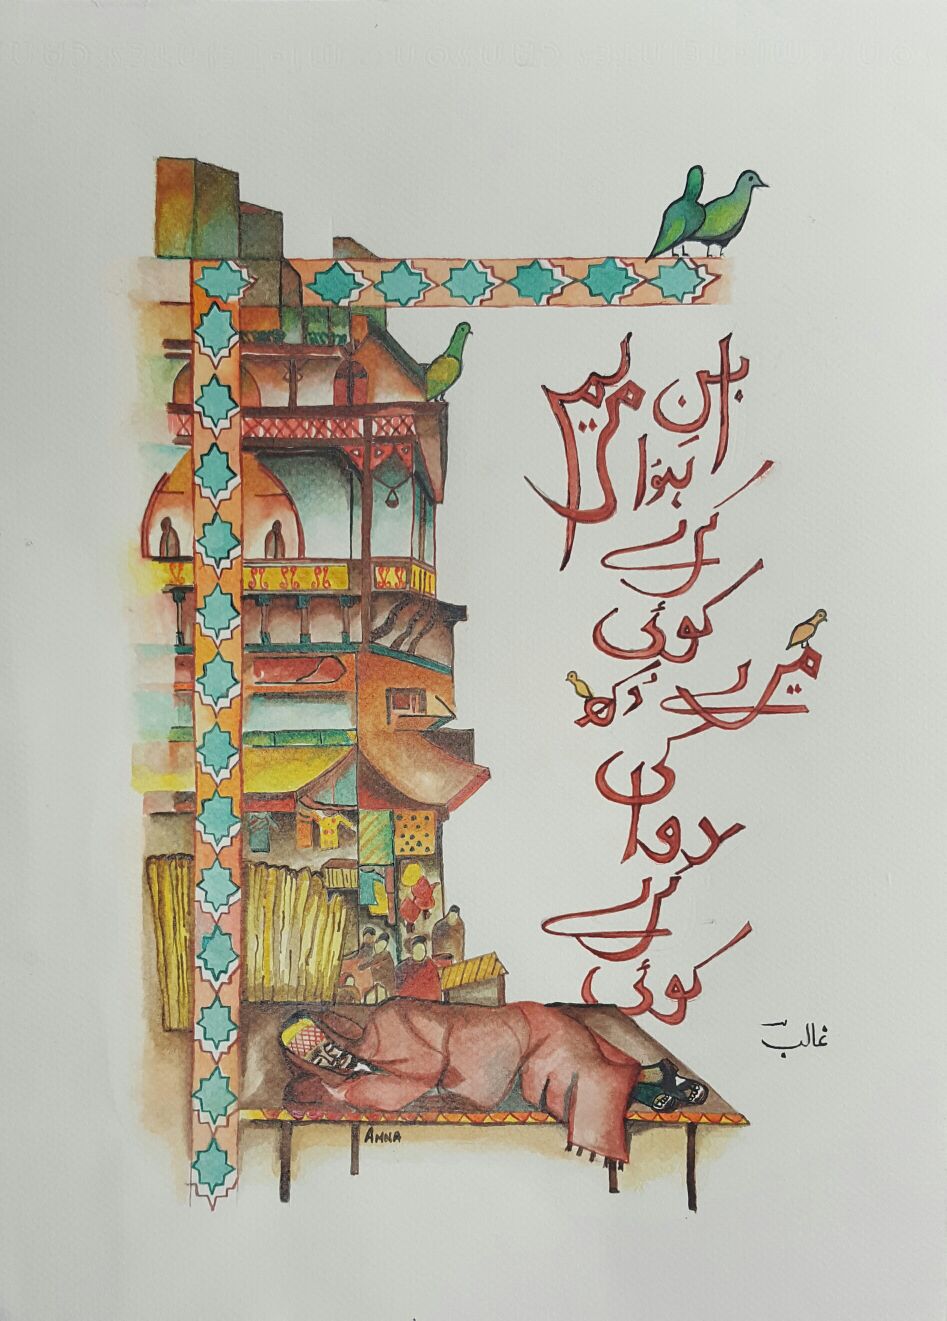 ابنِ مریم
ہُوا
کرے
کوئی
میرے دُکھ
کی
دوا
کرے
کوئی
غالب
AMNA